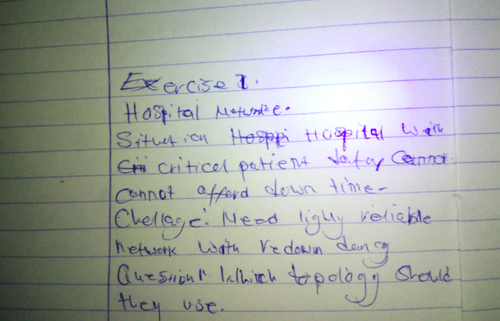 Exercise 1.
Hospital Networke.
Situation Hospital with
critical patient data Cannot
Cannot afford down time-
Challage: Need highly reliable
network with redown dancy
Question: Which topology should
they use.